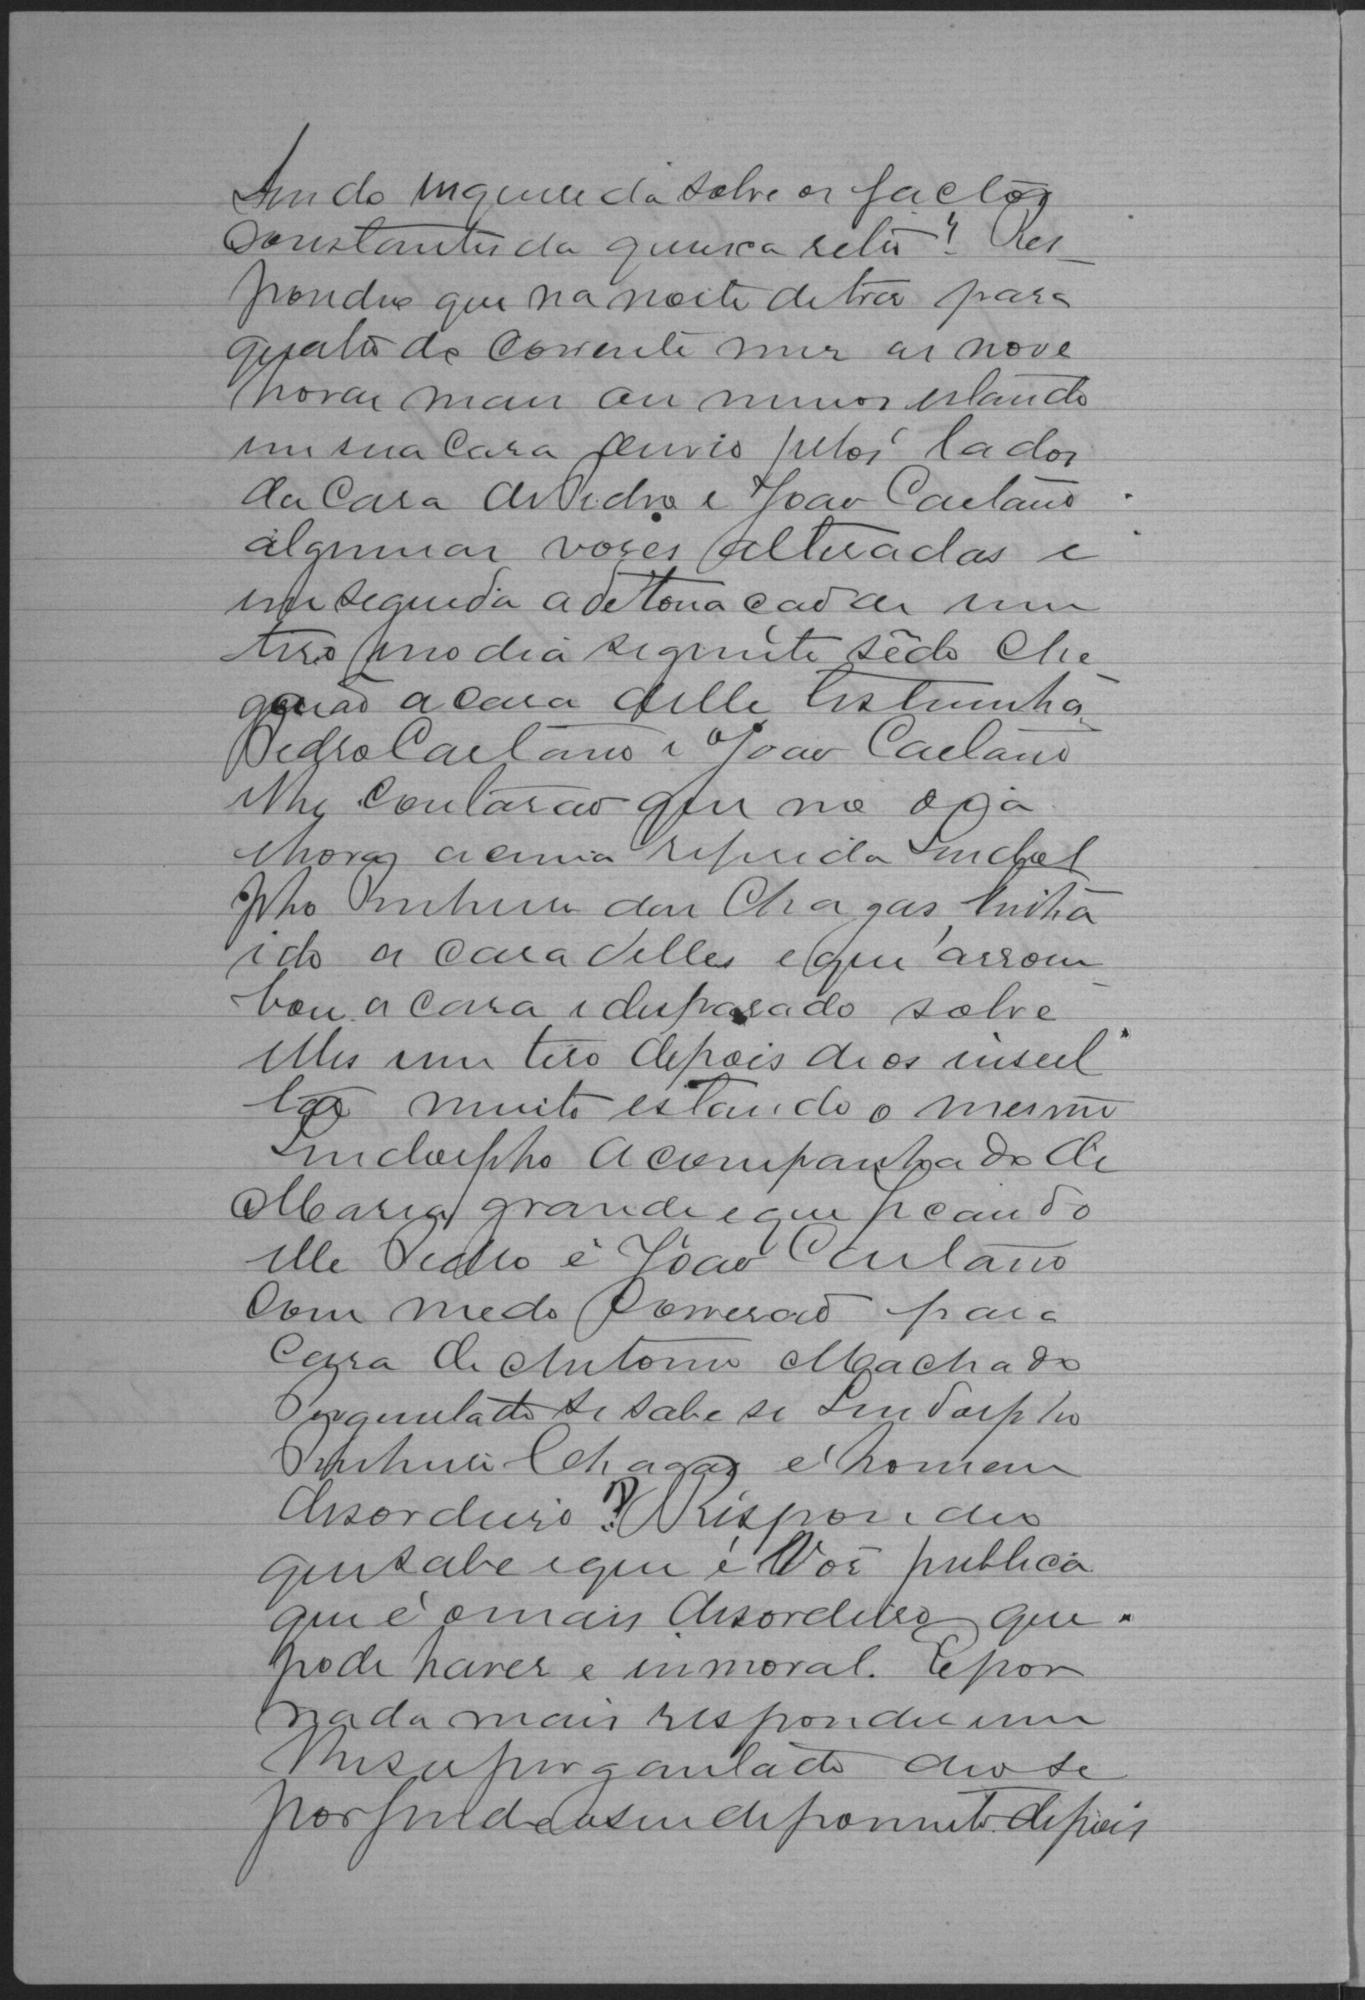 Sendo inquerida sobre os factos
Constantes da queixa retro? Res-
pondeo que na noite de tres para
quatro do corrente mes as nove
horas mais ou menos estando
em sua casa ouvio pelos lados
da casa de Pedro e Joao Caetano
algumas vozes alteradas e
em seguida a detonacao de um
tiro no dia seguinte sêdo che
garão a casa delle testemunha
Pedro Caetano e Joao Caetano
lhe contarao que no dia
e hora acima referida Lindol
pho Pinheiro das Chagas tinha
ido a casa delles e que arrom-
bou a casa e disparado sobre
elles um tiro depois de os insul
tar muito estando o mesmo
Lindorpho acompanhado de
Maria grande e que ficando
elle Pedro e Joao Caetano
com medo correrao para
casa de Antonio Machado
Perguntado se sabe se Lindorpho
Pinheiro Chagas é homem
desordeiro? Respondeo
que sabe e que é Vos publica
que é o mais desordeiro que
pode haver e inmoral. E por
nada mais responder nem
lhe ser perguntado deo se
por findo o seu depoimento depois